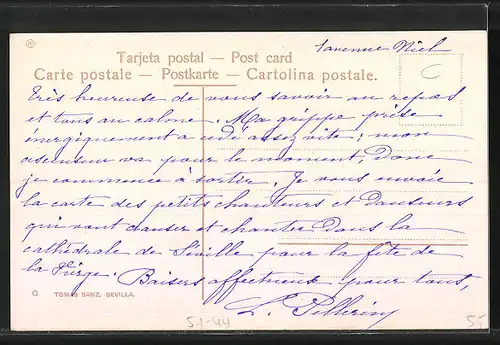 1 avenue Niel
Tarjeta postal — Post card
Carte postale — Postkarte — Cartolina postale.
C
Très heureuse de vous savoir au repos
et tous au calme. Ma grippe prise
énergiquement a cédé assez vite; mon
ascenseur va pour le moment, Donc
je commence à sortir. Je vous envoie
la carte des petits chanteurs et Danseurs
qui vont danser et chanter Dans la
cathédrale de Séville pour la fête de
la Vierge. Baisers affectueux pour tous,
L. Pellerin
TOMAS SANZ, SEVILLA.